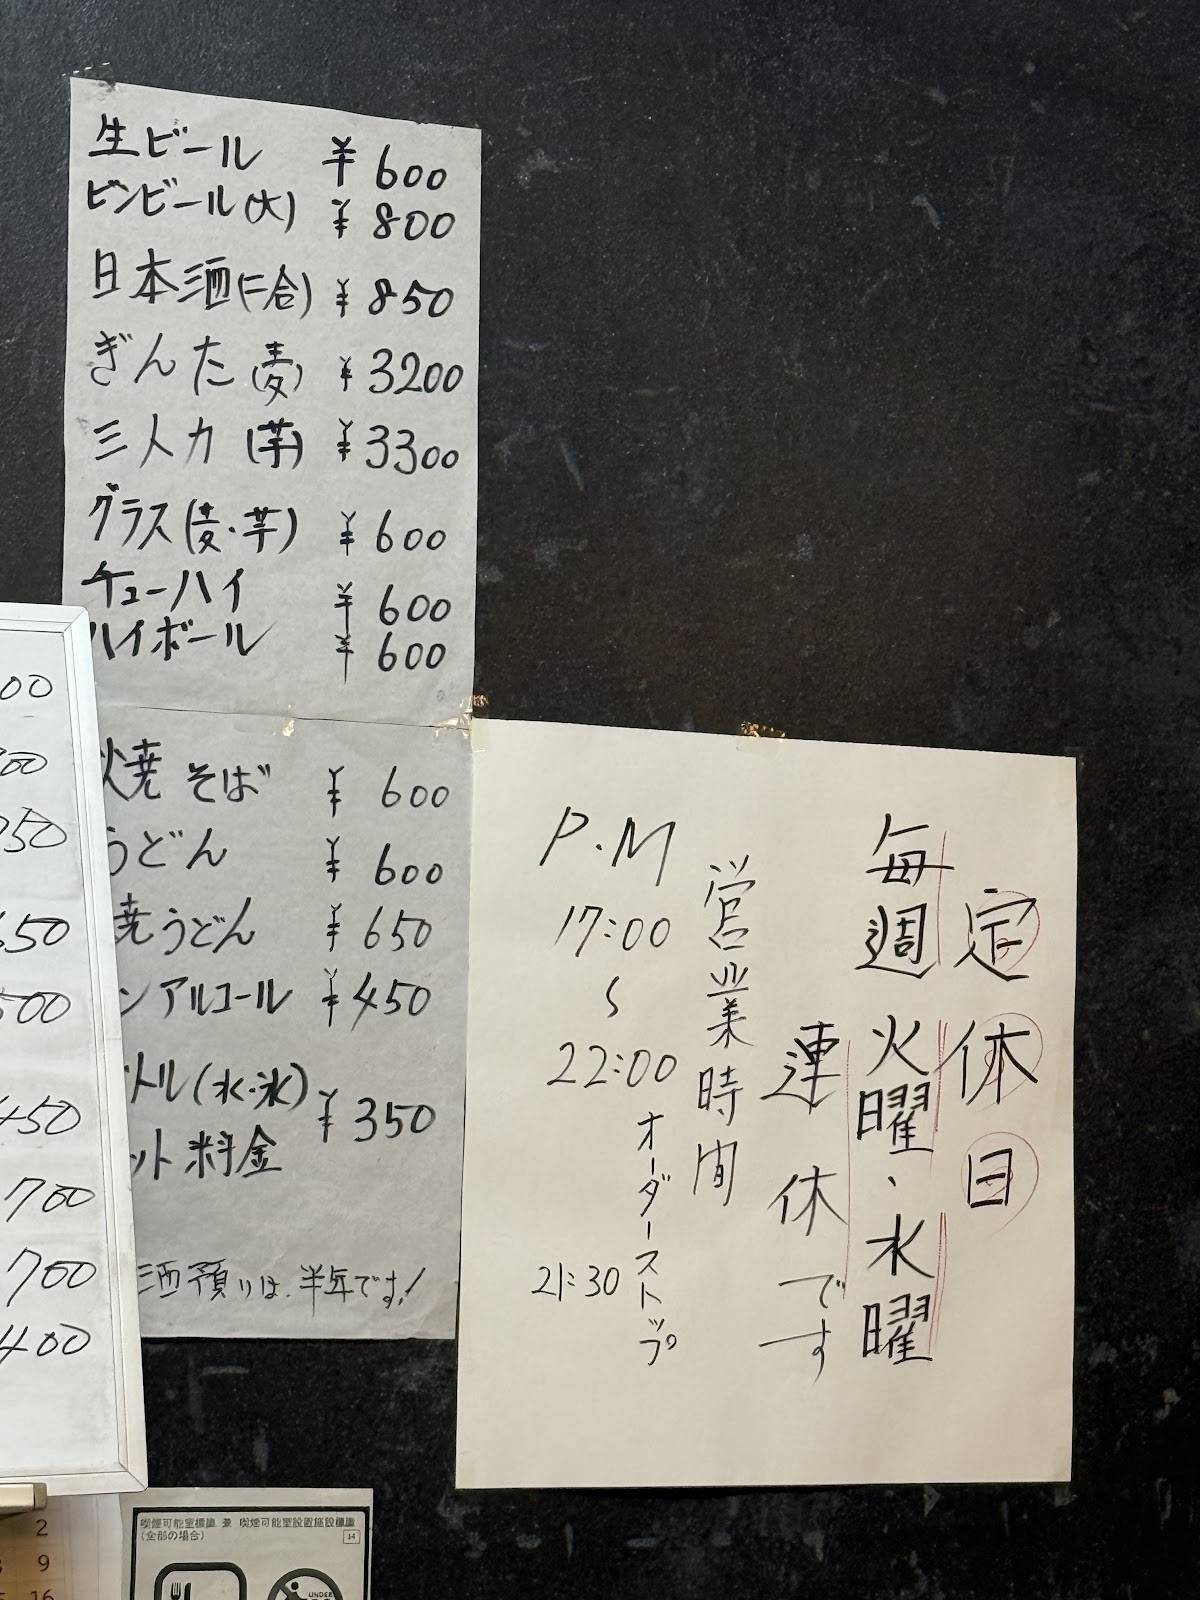 生ビール ¥600
ビンビール(大) ¥800
日本酒(二合) ¥850
ぎんた(麦) ¥3200
三人力(芋) ¥3300
グラス(麦・芋) ¥600
チューハイ ¥600
ハイボール ¥600
焼そば ¥600
うどん ¥600
焼うどん ¥650
ンアルコール ¥450
トル(水・氷)
ット料金 ¥350
酒預りは、半年です!
定休日
毎週火曜、水曜
連休です
営業時間
P.M
17:00
〜
22:00
オーダーストップ
21:30
00
00
50
50
500
450
700
700
400
喫煙可能室標識 兼 喫煙可能室設置施設標識
(全部の場合)
14
UNDER
2
9
16